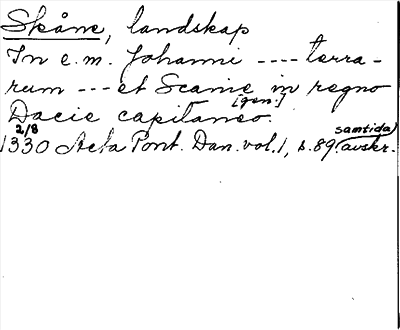 Skåne, landskap
In e.m. Johanni ---- terra-
rum --- et Scanie in regno
[gen.]
Dacie capitaneo.
2/8
samtida
1330 Acta Pont. Dan. vol. 1, s. 89. avskr.